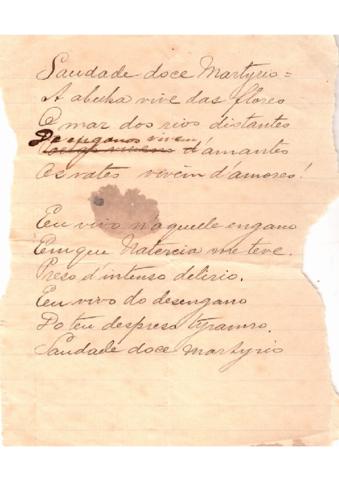 Saudade doce Martyrio =
A abelha vive das flores
O mar dos rios distantes
De enganos vivem d'amantes
Os vates vivem d'amores!
Eu vivo n'aquelle engano
Em que Natercia me teve.
Preso d'intenso delirio.
Eu vivo do desengano
Do teu despreso tyranno.
Saudade doce martyrio